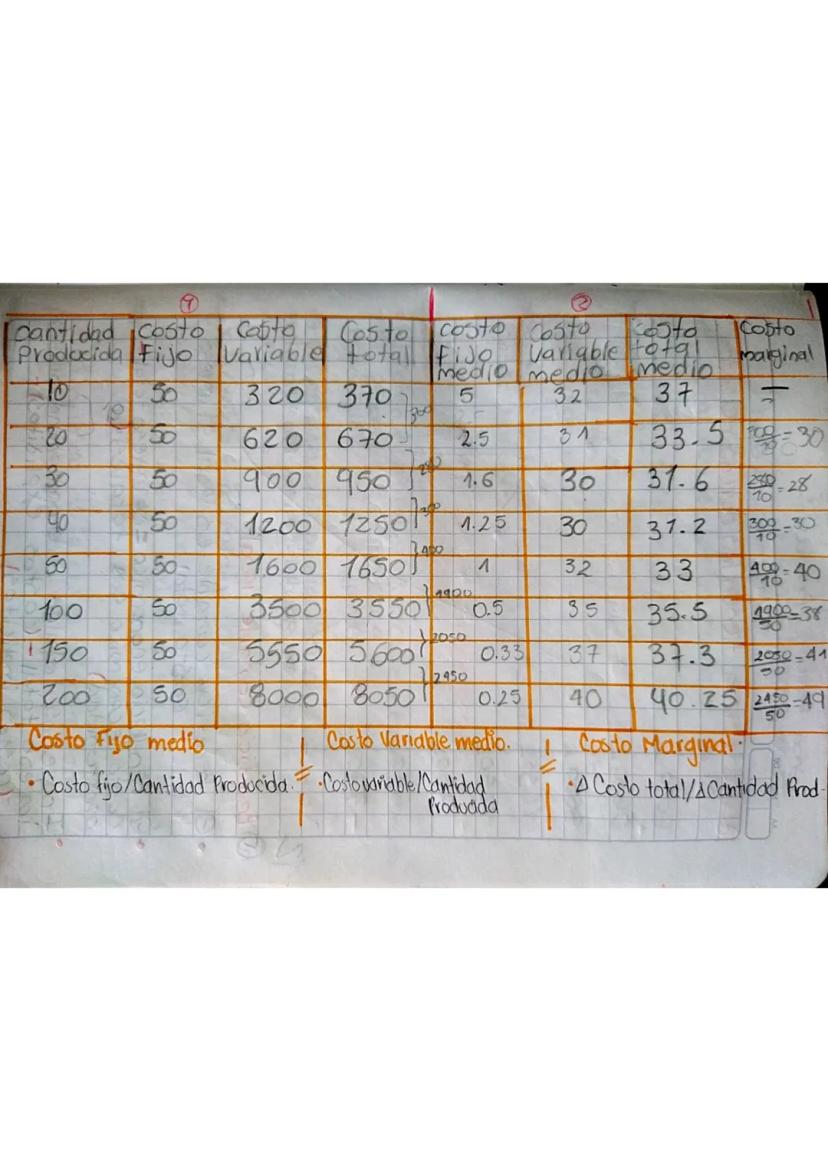 1 2
Cantidad Producida Costo Fijo Costo Variable Costo total Costo fijo medio Costo Variable medio Costo total medio Costo marginal
10 50 320 370 5 32 37 —
300
20 50 620 670 2.5 31 33.5 = 30
280
30 50 900 950 1.6 30 31.6 280/10 = 28
300
40 50 1200 1250 1.25 30 31.2 300/10 = 30
400
50 50 1600 1650 1 32 33 400/10 = 40
1900
100 50 3500 3550 0.5 35 35.5 1900/50 = 38
2050
150 50 5550 5600 0.33 37 37.3 2050/50 = 41
2450
200 50 8000 8050 0.25 40 40.25 2450/50 = 49
Costo Fijo medio Costo Variable medio. Costo Marginal.
• Costo fijo/Cantidad Producida. • Costo variable/Cantidad Producida • Δ Costo total/Δ Cantidad Prod.